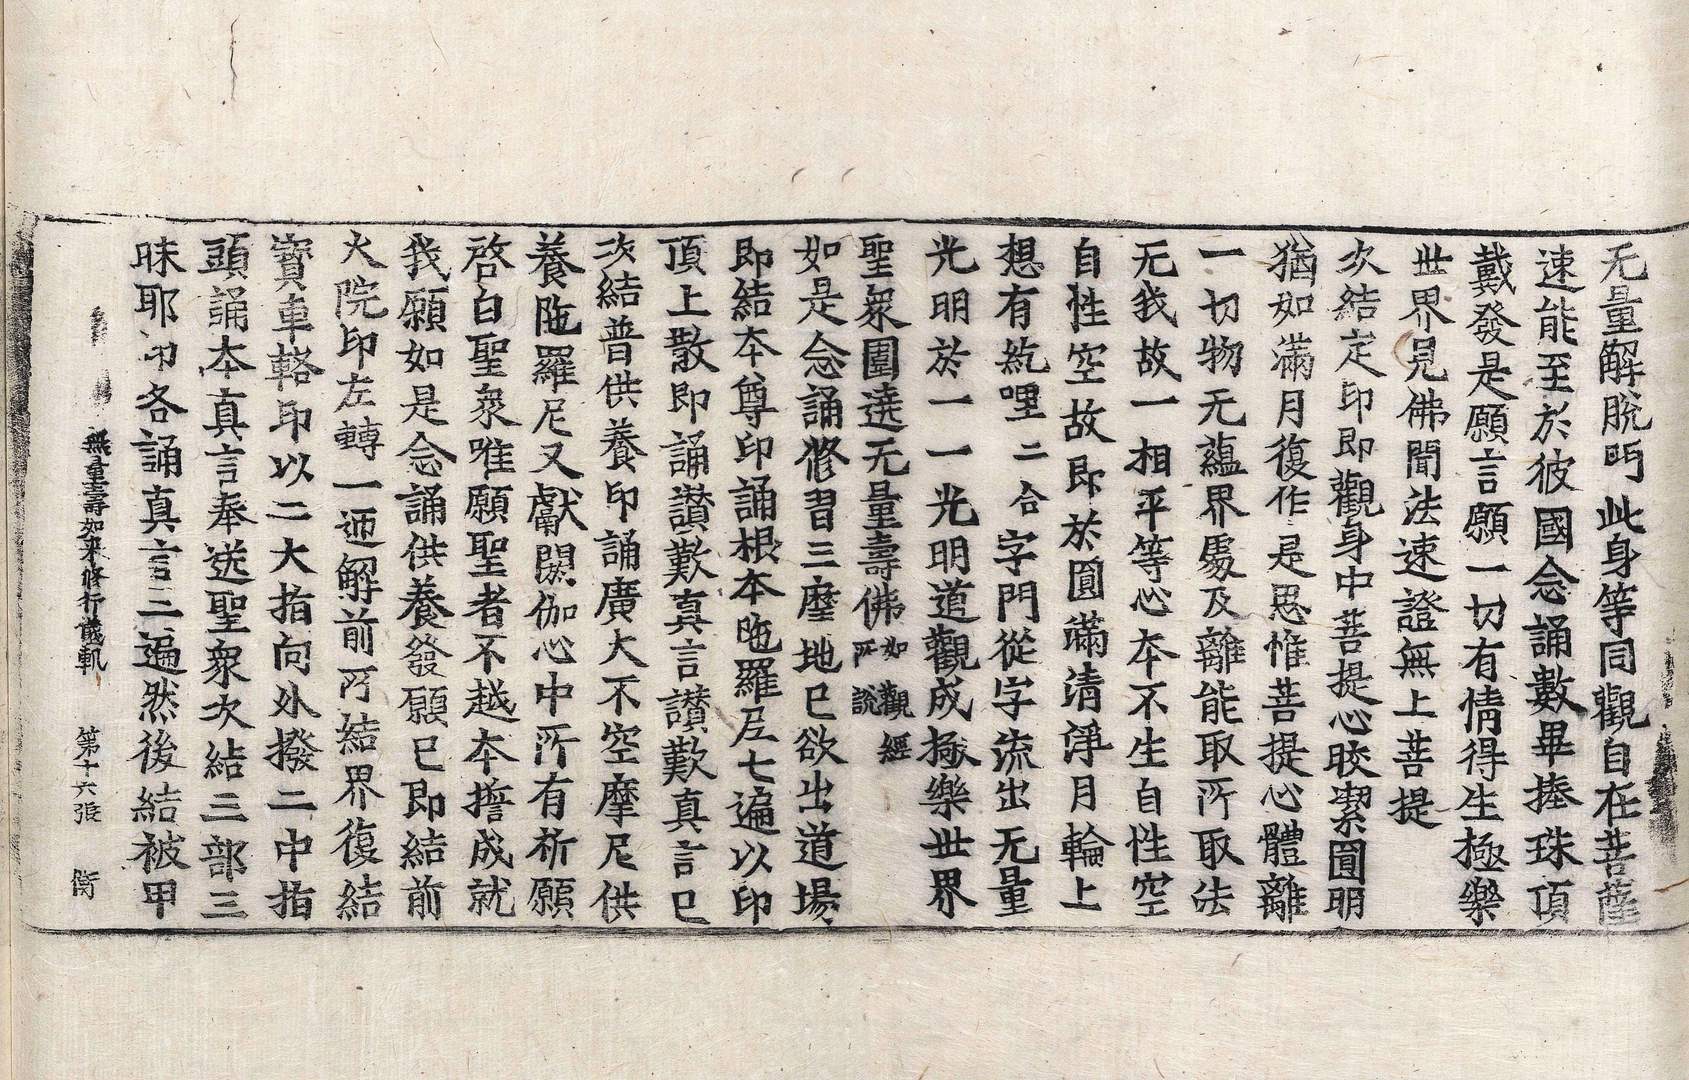 无量解脫門此身等同觀自在菩薩
速能至於彼國念誦數畢捧珠頂
戴發是願言願一切有情得生極樂
世界見佛聞法速證無上菩提
次結定印即觀身中菩提心皎潔圓明
猶如滿月復作是思惟菩提心體離
一切物无蘊界處及離能取所取法
无我故一相平等心本不生自性空
自性空故即於圓滿清淨月輪上
想有紇哩二合字門從字流出无量
光明於一一光明道觀成極樂世界
聖衆圍遶无量壽佛如觀經所說
如是念誦修習三摩地已欲出道場
即結本尊印誦根本陁羅尼七遍以印
頂上散即誦讚歎真言讚歎真言已
次結普供養印誦廣大不空摩尼供
養陁羅尼又獻閼伽心中所有祈願
啓白聖衆唯願聖者不越本誓成就
我願如是念誦供養發願已即結前
火院印左轉一迊解前所結界復結
寶車輅印以二大指向外撥二中指
頭誦本真言奉送聖衆次結三部三
昧耶印各誦真言三遍然後結被甲
無量壽如來修行儀軌　第十六張　衡